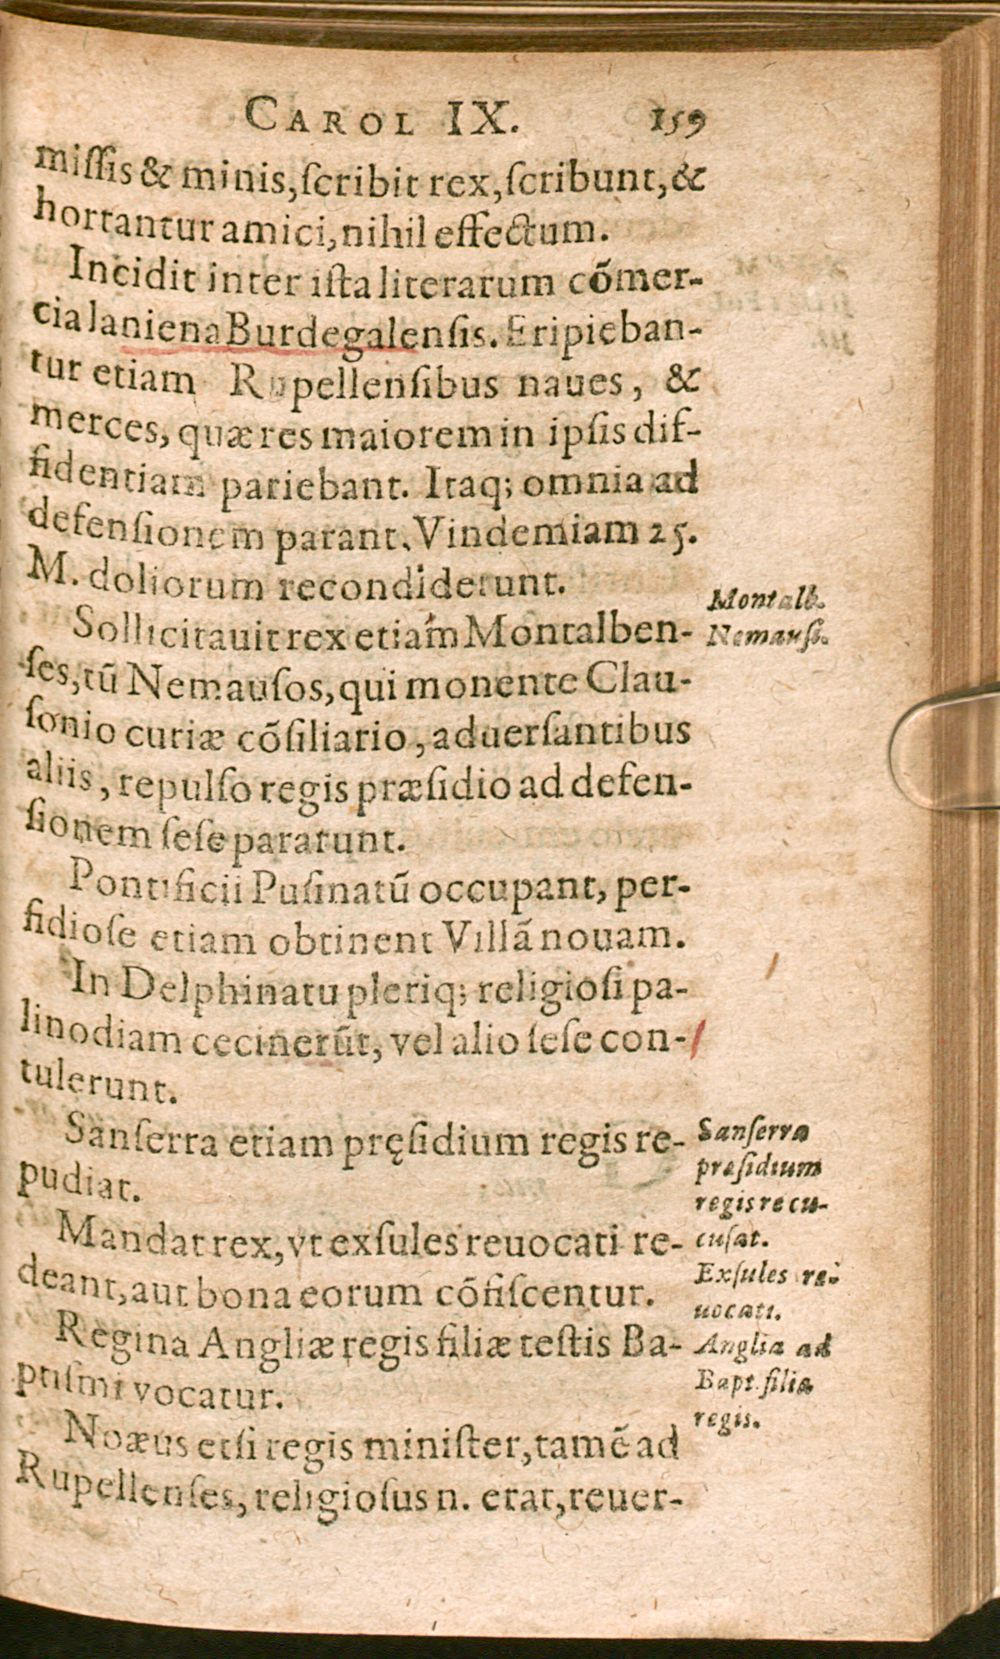 CAROL IX. 159
miſſis & minis, ſcribit rex, ſcribunt, &
hortantur amici, nihil effectum.
Incidit inter iſta literarum cōmer-
cia laniena Burdegalenſis. Eripieban-
tur etiam Rupellenſibus naues, &
merces, quæ res maiorem in ipſis dif-
fidentiam pariebant. Itaq; omnia ad
defenſionem parant. Vindemiam 25.
M. doliorum recondiderunt.
Sollicitauit rex etiam Montalben-
ſes, tū Nemauſos, qui monente Clau-
ſonio curiæ cōſiliario, aduerſantibus
aliis, repulſo regis præſidio ad defen-
ſionem ſeſe pararunt.
Montalb.
Nemauſi.
Pontificii Puſinatū occupant, per-
fidioſe etiam obtinent Villā nouam.
In Delphinatu pleriq; religioſi pa-
linodiam cecinerūt, vel alio ſeſe con-
tulerunt.
Sanſerra etiam pręſidium regis re-
pudiat.
Sanſerra
præſidium
regis recu-
cuſat.
Mandat rex, vt exſules reuocati re-
deant, aut bona eorum cōfiſcentur.
Exſules re-
uocati.
Regina Angliæ regis filiæ teſtis Ba-
ptiſmi vocatur.
Anglia ad
Bapt. filiæ
regis.
Noæus etſi regis miniſter, tamē ad
Rupellenſes, religioſus n. erat, reuer-